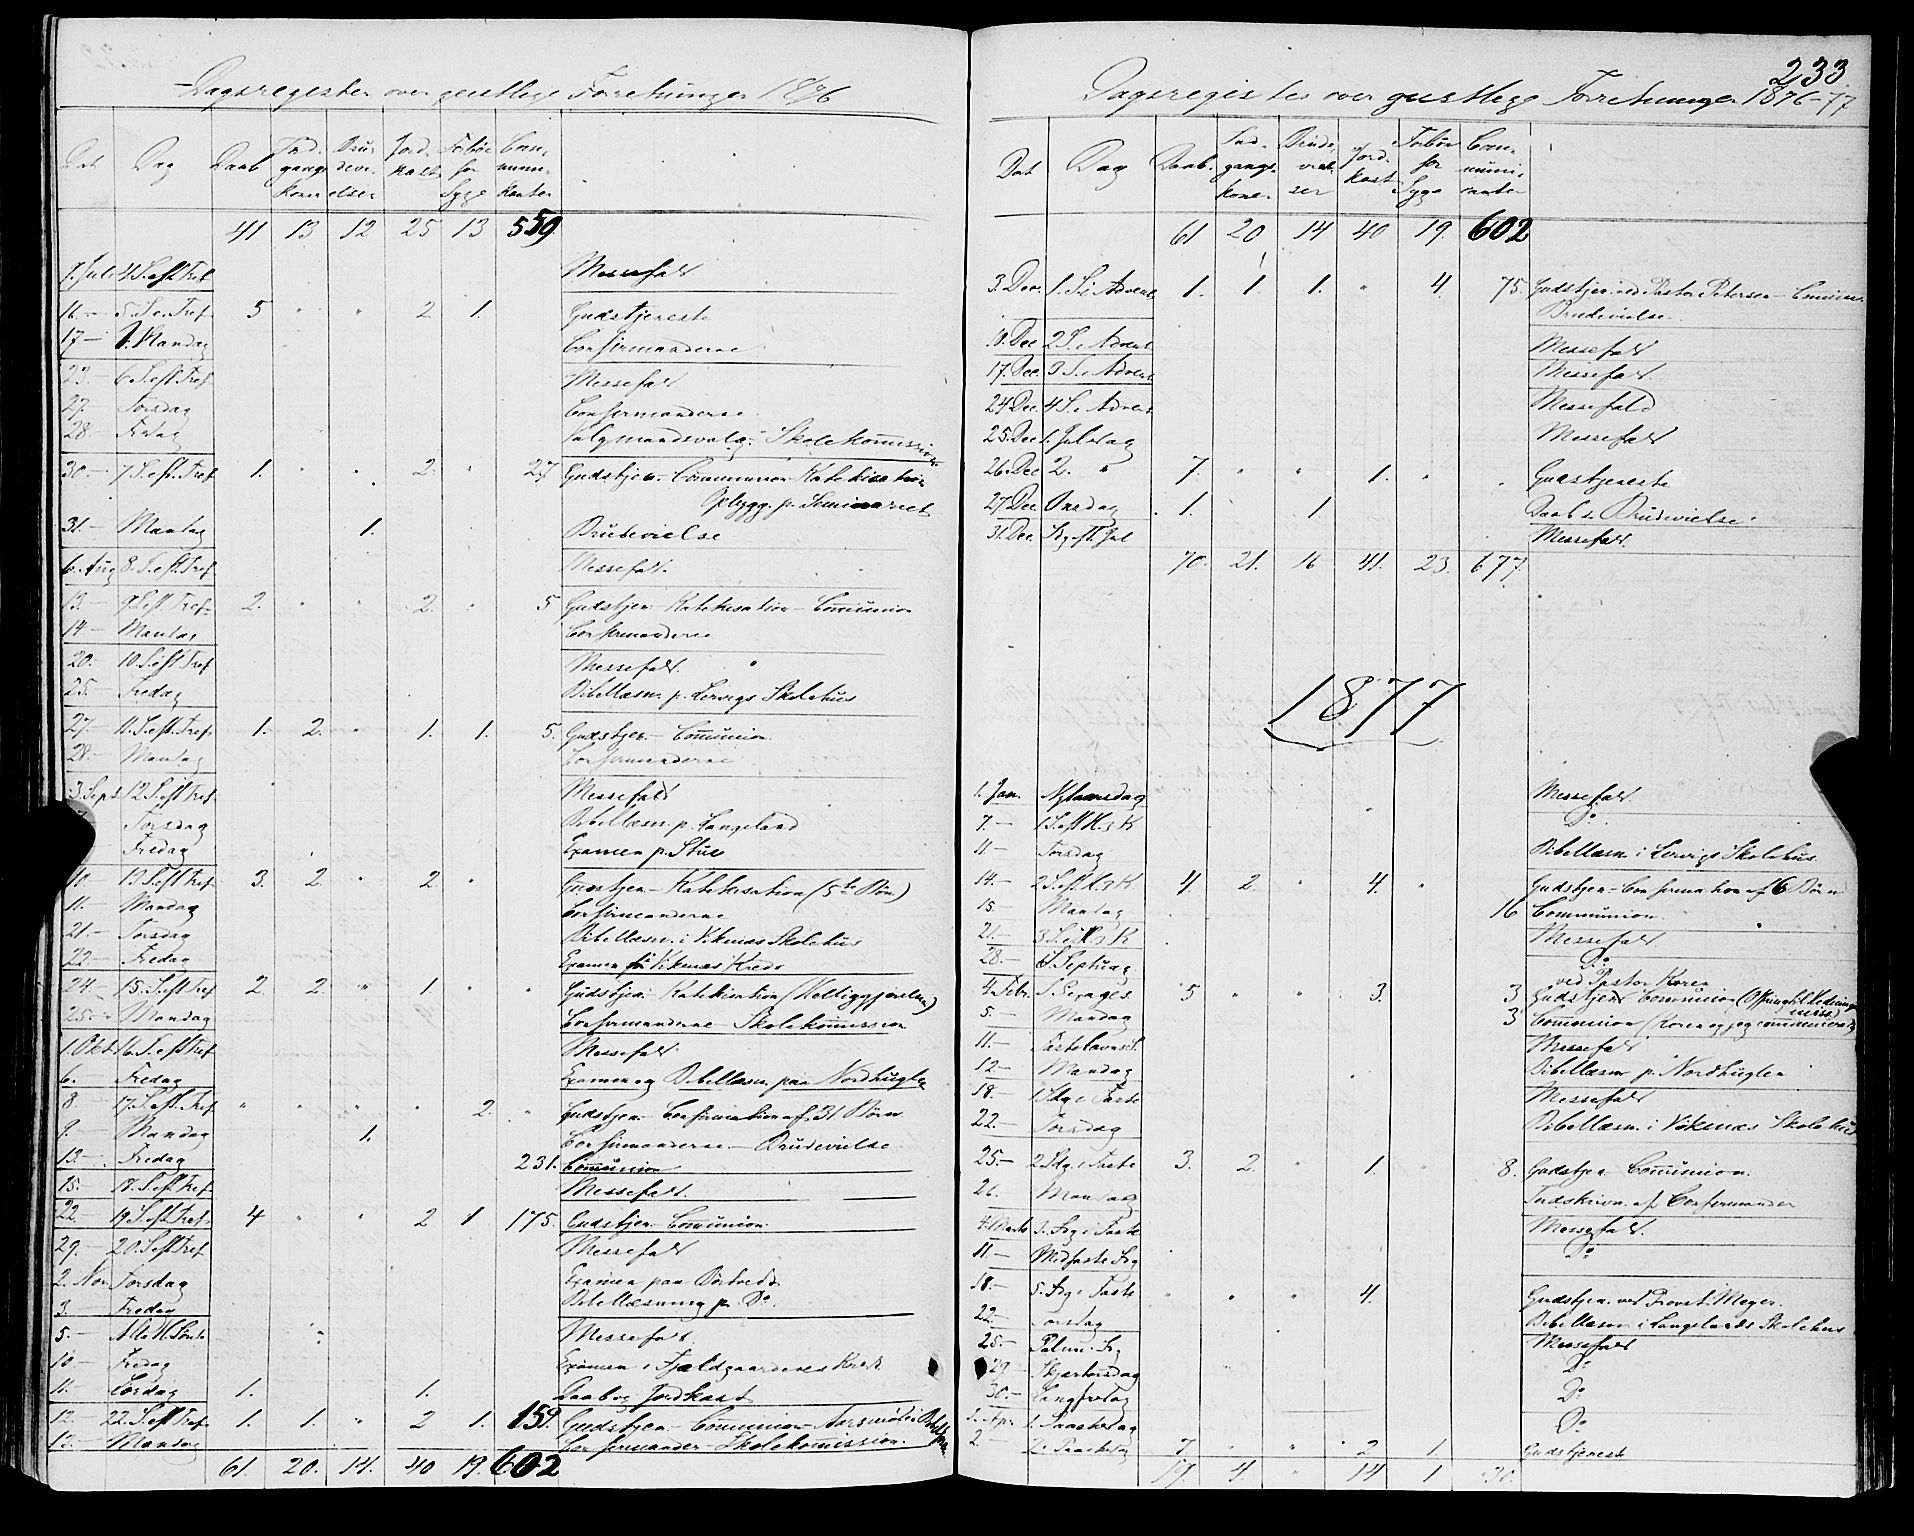 Dagsregister over geistlige Forretninger 1876
Dat Dag Daab Indgangskoner Brudevielser Jordkast Forbøn for Syge Communikanter
41 13 12 25 13 559
9. Juli 4 S. eft. Tref. Messefald
16 — 5 S. e. Tref. 5 " " 2. 1. Gudstjeneste
17 — Mandag Confirmanderne
23. — 6 S. eft. Tref. Messefald.
27. — Torsdag Confirmanderne.
28. — Fredag Valgmandsvalg. — Skolekommission
30. — 7 S. eft. Tref. 1. " . 2. " 27 Gudstjen. — Communion — Katekisation
Opbygg. p. Seminariet
31. — Mandag 1. Brudevielse
6. Aug 8. S. eft. Tref. Messefald.
13. — 9 S. eft. Tref. 2. " " 2. " 5 Gudstjen — Katekisation — Communion
14 — Mandag Confirmanderne
20. — 10. S. eft. Tref. Messefald.
25. — Fredag Bibellæsn. p. Lervigs Skolehus
27. — 11. S. eft. Tref. 1. 2. " 1. 1. 5. Gudstjen. — Communion.
28. — Mandag Confirmanderne
3. Sept. 12 S. eft. Tref. Messefald
Torsdag Bibellæsn. p. Langeland
Fredag Examen p. Stue
10 — 13 S. eft. Tref. 3. 2. " 2. " Gudstjen — Katekisation (5te Bøn)
11. — Mandag Confirmanderne
21. — Torsdag Bibellæsn. i Viknæs Skolehus
22 — Fredag Examen Viknæs Kreds
24. — 15. S. eft. Tref. 2. 2. " 1. " " Gudstjen — Katekisation (Helliggjørelsen)
25. — Mandag Confirmanderne — Skolekommission
1. Okt. 16. S. eft. Tref. Messefald.
6. Fredag Examen og Bibellæsn. paa Nordhuglen
8. — 17. S. eft. Tref. " " " " 2. " Gudstjen — Confirmation af 31 Børn
9. — Mandag 1. Confirmanderne — Brudevielse
13. — Fredag 231. Communion
15. — 18. S. eft. Tref. Messefald.
22. — 19. S. eft. Tref. 4 " " 2 1 175. Gudstjen — Communion.
29. — 20. S. eft. Tref. Messefald
2. Nov Torsdag Examen paa
3. — Fredag Bibellæsning p. Do.
5. — Messefald.
10 — Fredag Examen i Fjældgaardenes Kreds
11. — Lørdag 1. 1. Daab og Jordkast
12. — 22. S. eft. Tref. 1. 1. " 2 1. 159. Gudstjen — Communion — Aarsmøde i
13. — Mandag Confirmander — Skolekommission.
61. 20. 14. 40 19. 602
233
Dagsregister over geistlige Forretninger 1876–77
Dat Dag Daab. Indgangskoner Brudevielser Jordkast Forbøn for Syge Communicanter
61 20 14 40 19. 602
3. Dec. 1. S. i Advent 1. 1. 1. " 4. 75. Gudstjen. ved Pastor Petersen —
Brudevielse.
10. Dec 2 S. i Advent Messefald
17. Dec. 3 S. i Advent Messefald.
24 Dec. 4 S. i Advent Messefald
25. Dec 1. Juledag Messefald
26. Dec 2. " 7. " " 1. " . Gudstjeneste
27. Dec Onsdag 1. 1. Daab & Brudevielse.
31. Dec. Sg. eft. Jul Messefald.
70. 21. 16 41. 23. 677.
1877
1. Jan. Nytaarsdag Messefald.
7. — 1 S. eft. H. 3 K Do
11 — Torsdag Bibellæsn. i Lervigs Skolehus.
14. — 2 S. eft. H. 3 K. 4 2. " 4. " Gudstjen — Confirmation af 6 Børn
15. — Mandag 16 Communion.
21. — 3 S. e. H. 3 K Messefald.
28. — S. Septuag. Do
ved Pastor Koren
4. Febr. S. Sexages 5 " " 3. 3 Gudstjen Communion (Offring til Hedningemiss.)
5. — Mandag 3 Communion (Koren og jeg communicerede)
11. — Fastelavnss. Messefald
12. — Mandag Bibellæsn. p. Nordhuglen
18. — 1 Sdg. i Faste Messefald
22. — Torsdag Bibellæsn. i Viknæs Skolehus
25. — 2 Sdg. i Faste 3. 2. " 1. " 8. Gudstjen — Communion.
26. Mandag Indskrivn. af Confirmander
4. Marts 3. Sg. i Faste Messefald.
11. — Midfaste Sg Do
18. — 5. Sg. i Faste " " " 4. Gudstjen. ved Provst Meyer.
22. — Torsdag Bibellæsn. i Langelands Skolehus
25. — Palme Sg Messefald
29 — Skjærtorsdag Do
30. — Langfredag Do
1. Apr. 1. Paaskedag Do
2. 2. Paaskedag 7 " " 2 1. Gudstjeneste
19. 4. " 14 1 30.